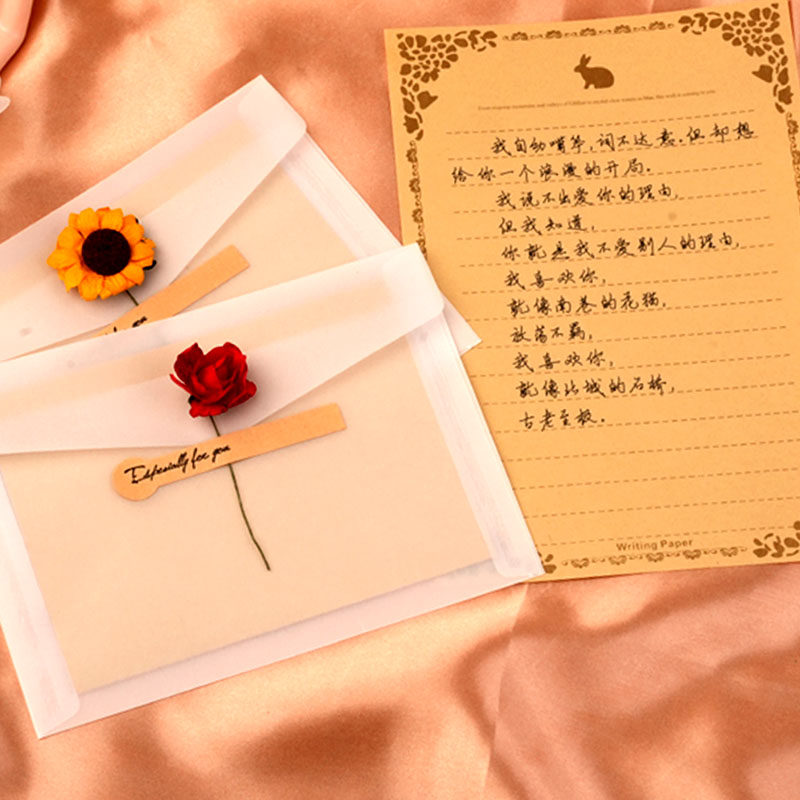 我自动嘴笨，词不达意。但却想
给你一个浪漫的开局。
我说不出爱你的理由，
但我知道，
你就是我不爱别人的理由，
我喜欢你，
就像南巷的花猫，
放荡不羁，
我喜欢你，
就像北城的石桥，
古老至极。
Writing Paper
Especially for you
for you